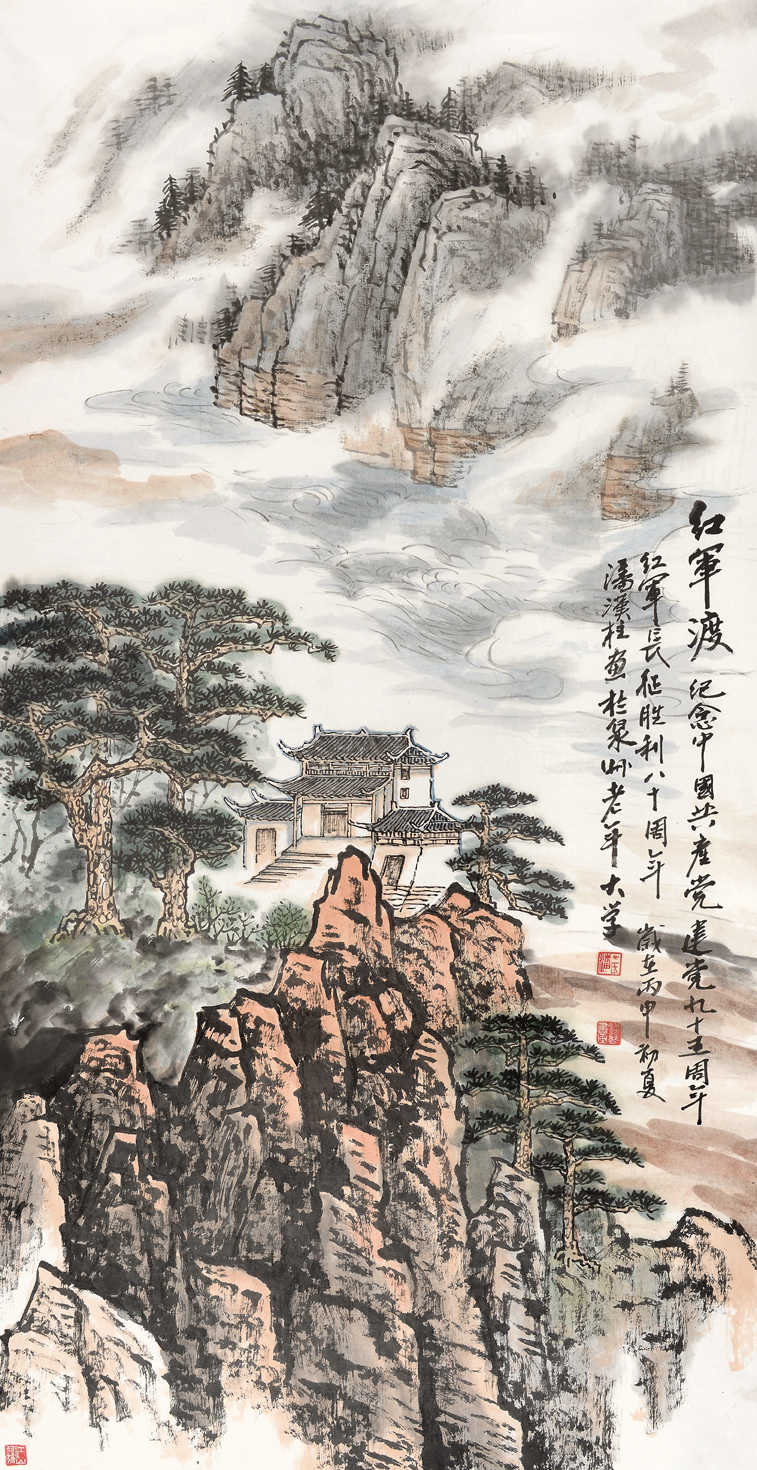 红軍渡 纪念中國共産党建党九十五周年
红軍長征胜利八十周年 歲在丙申初夏
潘柱画於泉州老年大学